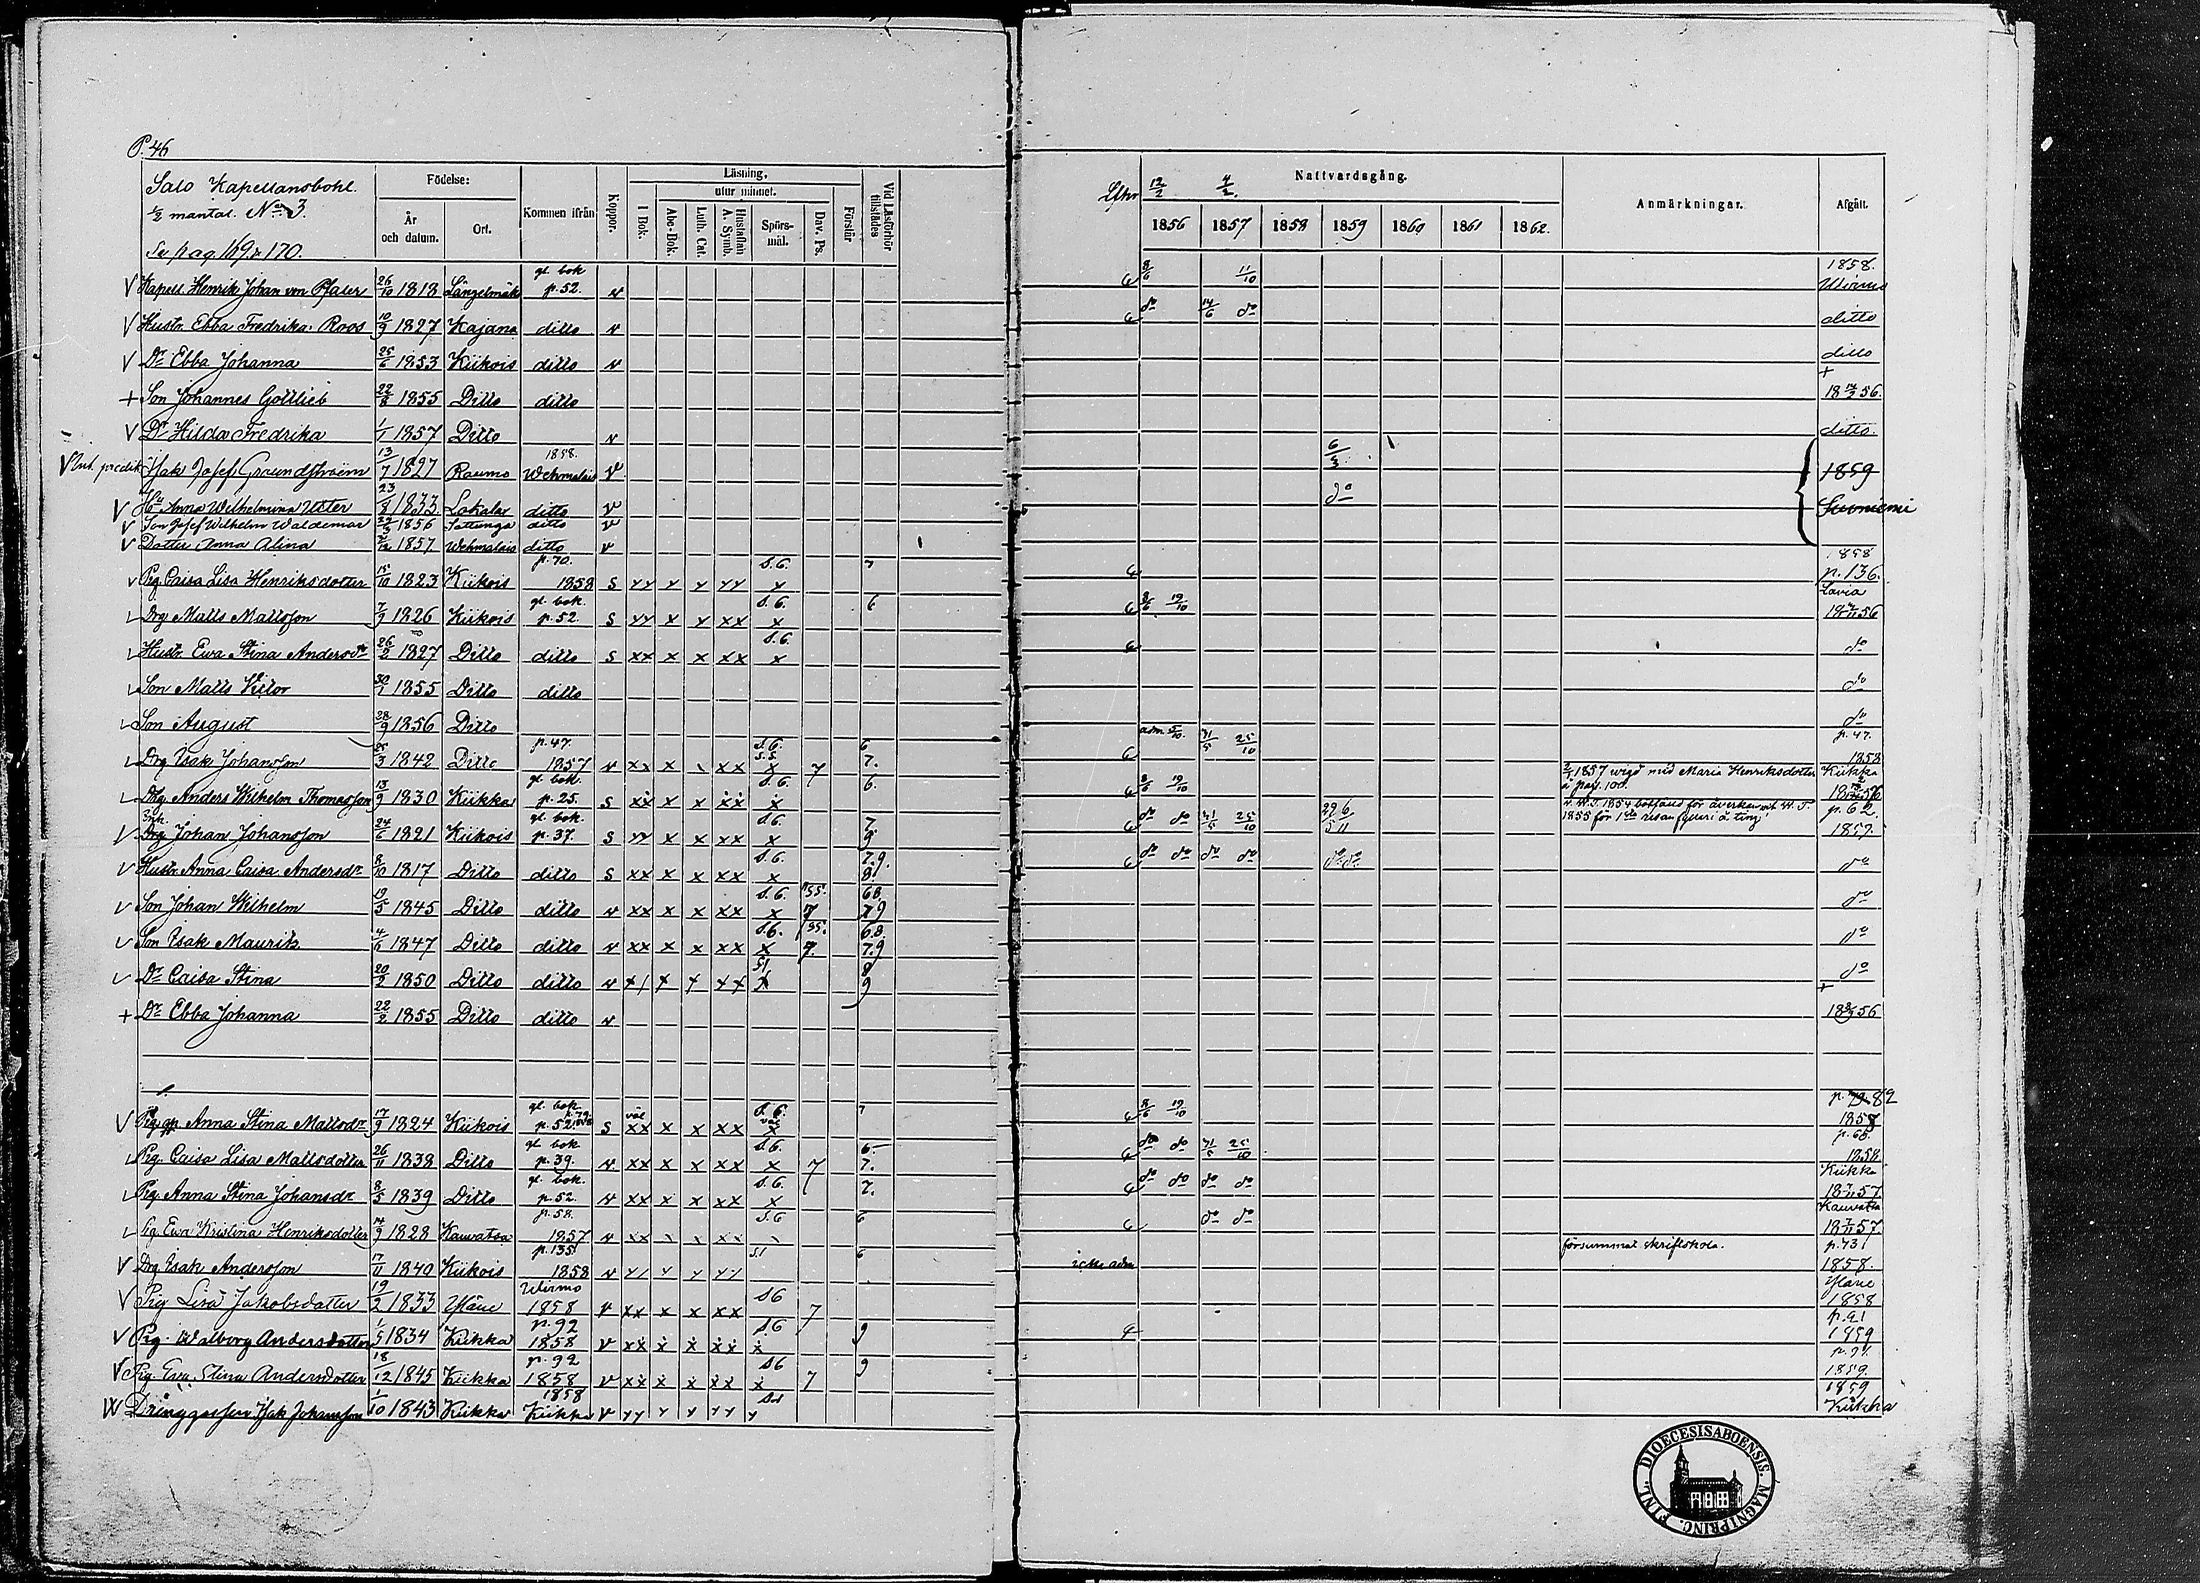 P. 46
Salo Kapellansbohl.
1/2 mantal. No 3.
Se pag 169 & 170.
Födelse:
År och datum.
Ort.
Kommen ifrån
Koppor.
Läsning,
I Bok.
utur minnet.
Abc-Bok.
Luth. Cat.
Hustaflan A. Symb.
Spörs-mål.
Dav. Ps.
Förstår
Vid Läsförhör tillstädes
12/2 4/2.
Nattvardsgång.
1856 1857 1858 1859 1860 1861 1862
Anmärkningar.
Afgått.
V Kapell. Henrik Johan von Pfaler 26/10 1818 Längelmäki gl. bok p. 52. v 8/6 11/10 1858. Wirmo
V Hustr. Ebba Fredrika Roos 10/9 1827 Kajana ditto v do 14/6 do ditto
V Dr Ebba Johanna 25/6 1853 Kiikois ditto v ditto
+ Son Johannes Gottlieb 22/8 1855 Ditto ditto + 18 14/3 56.
V Dr Hilda Fredrika 1/1 1857 Ditto v ditto.
V Isak Josef Grundström 13/7 1827 Raumo 1858. Wehmalais v 6/3 1859
V Hu Anna Wilhelmina Uster 23/8 1833 Lokalax ditto v do Suoniemi
V Son Josef Wilhelm Waldemar 1856 Sattunga ditto v
V Dotter Anna Alina 1857 Wehmalais ditto v
v Pig. Caisa Lisa Henriksdotter 15/10 1823 Kiikois p. 70. 1858 s xx x x xx S.6. x 7 6 1858 p. 136.
Drg Matts Mattsson 7/9 1826 Kiikois gl. bok. p. 52. s xx x x xx S.6. x 6 6 8/6 19/10 Lavia 56
Hustr. Ewa Stina Andersdr 26/2 1827 Ditto ditto s xx x x xx S.6. x 6 do
Son Matts Victor 30/1 1855 Ditto ditto do
Son August 28/9 1856 Ditto do
Drg Isak Johansson 25/3 1842 Ditto p. 47. 1857 v xx x x xx S.6. S.S. x 7 6 7. 6 adm. 5/10. 31/5 25/10 p. 47. 1858
Drg Anders Wilhelm Thomasson 13/9 1830 Kiikka gl. bok. p. 25. s xx x x xx S.6. x 6. 6 8/6 19/10 1857 wigd med Maria Henriksdotter å pag. 100. Kiikka 56
Drg Johan Johansson 24/6 1821 Kiikois gl. bok. p. 37. s xx x x xx S.6. x 7 9 6 do do 31/5 25/10 29/5 6/11 1855 för 1sta resan å ting p. 62. 1859.
V Hustr. Anna Caisa Andersdr 8/10 1817 Ditto ditto s xx x x xx S.6. x 7.9. 8. 6 do do do do do do do
V Son Johan Wilhelm 19/5 1845 Ditto ditto v xx x x xx S.6. x 55. 7 68. 79 do
V Son Isak Maurits 1847 Ditto ditto v xx x x xx S.6. x 55. 7. 6.8. 7.9 do
Dr Caisa Stina 20/2 1850 Ditto ditto v x/ x x xx S1 8 9 do
+ Dr Ebba Johanna 22/2 1855 Ditto ditto v + 56
V Pig. Anna Stina Mattsdr 17/9 1824 Kiikois gl. bok p. 52 s väl xx x x xx S.6. x 7 6 8/6 19/10 p. 82 1858
Pig. Caisa Lisa Mattsdotter 26/11 1838 Ditto gl. bok p. 39. v xx x x xx S.6. x 7 6 7. 6 do do 31/5 25/10 p. 66. 1858
Pig. Anna Stina Johansdr 8/5 1839 Ditto gl. bok. p. 52. v xx x x xx S.6. x 7. 6 do do do do Kiikka 57.
Pig. Ewa Kristina Henriksdotter 14/9 1828 Kauvatsa p. 58. 1857 v xx S.6 6 6 do do Kauvatsa 57.
V Drg. Isak Andersson 17/11 1840 Kiikois p. 135 1858 v S1 6 icke adm försummat skriftskola. p. 73. 1858.
V Pig Lisa Jakobsdotter 19/2 1833 Yläne Wirmo 1858 v xx x x xx S6 7 Yläne 1858
V Pig. Walborg Andersdotter 1/5 1834 Kiikka p. 92 1858 v xx x x xx S.6 x 9 p. 91 1859
V Pig. Eva Stina Andersdotter 18/12 1845 Kiikka p. 92 1858 v xx x x xx S6 x 7 9 1859.
Dränggossen Isak Johansson 1/10 1843 Kiikka 1858 Kiikka v 1859 Kiikka
DIOECESIS ABOENSIS. MAGNI PRINC. FINL.